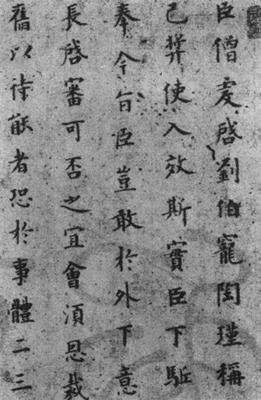 臣僧虔啓劉伯寵陶瑾稱
已奬使入效斯實臣下駈
奉今旨臣豈敢於外下意
長啓審可否之宜會須恩裁
舊以待猷者恐於事體二三